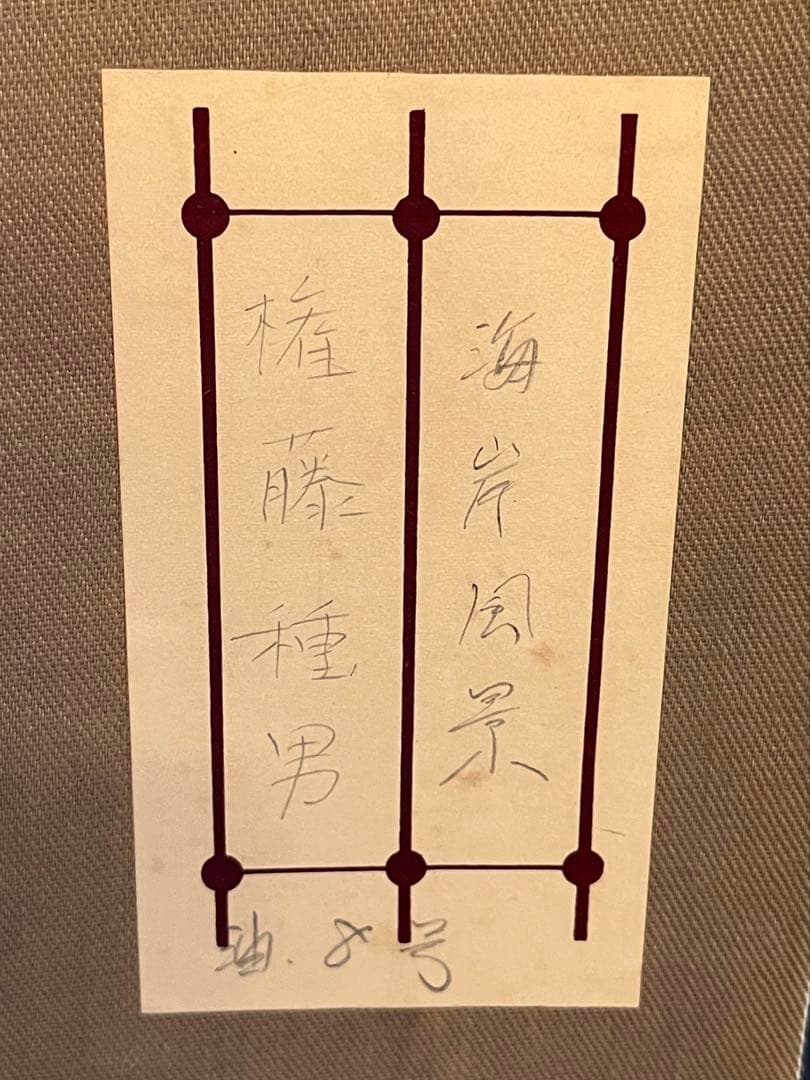 海岸風景
権藤種男
油.8号